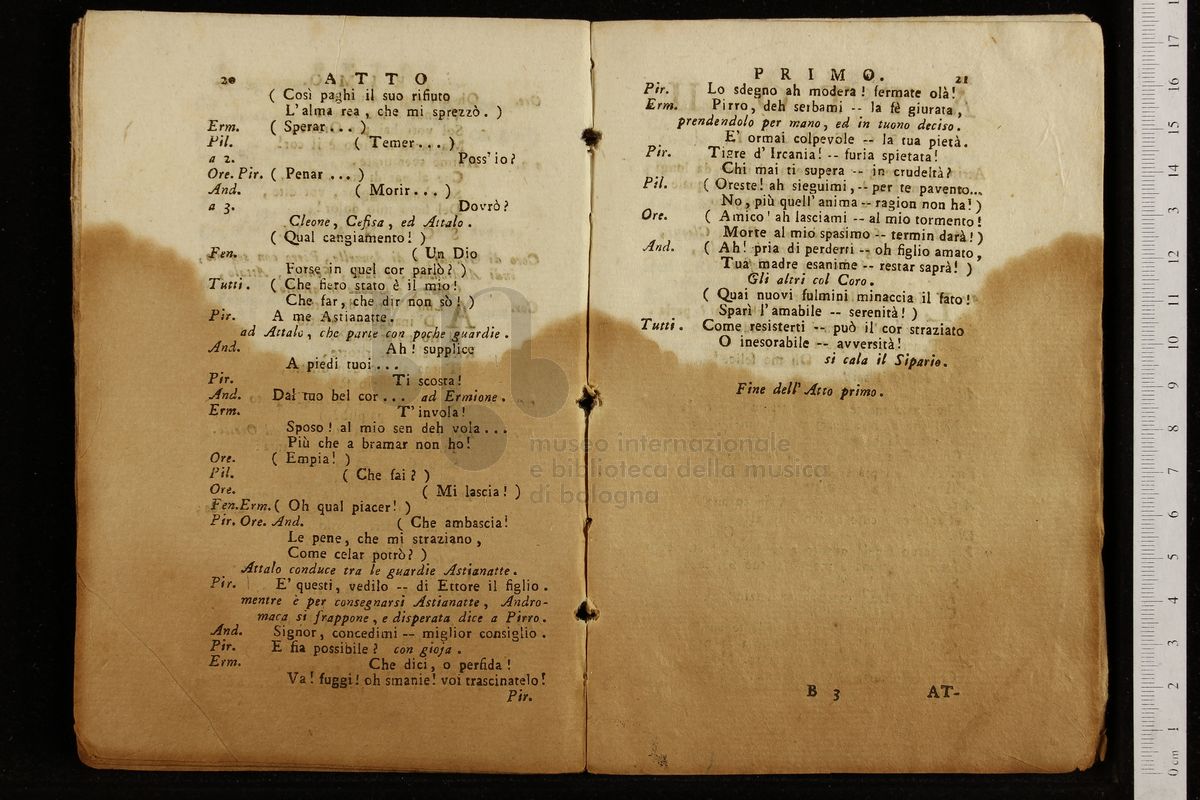 20 ATTO
( Così paghi il suo rifiuto
L'alma rea, che mi sprezzò. )
Erm. ( Sperar... )
Pil. ( Temer... )
a 2. Poss'io?
Ore. Pir. ( Penar ... )
And. ( Morir... )
a 3. Dovrò?
Cleone, Cefisa, ed Attalo.
( Qual cangiamento! )
Fen. ( Un Dio
Forse in quel cor parlò? )
Tutti. ( Che fiero stato è il mio!
Che far, che dir non sò! )
Pir. A me Astianatte.
ad Attalo, che parte con poche guardie.
And. Ah! supplice
A piedi tuoi...
Pir. Ti scosta!
And. Dal tuo bel cor... ad Ermione.
Erm. T'invola!
Sposo! al mio sen deh vola...
Più che a bramar non ho!
Ore. ( Empia! )
Pil. ( Che fai? )
Ore. ( Mi lascia! )
Fen. Erm. ( Oh qual piacer! )
Pir. Ore. And. ( Che ambascia!
Le pene, che mi straziano,
Come celar potrò? )
Attalo conduce tra le guardie Astianatte.
Pir. E' questi, vedilo -- di Ettore il figlio.
mentre è per consegnarsi Astianatte, Andro-
maca si frappone, e disperata dice a Pirro.
And. Signor, concedimi -- miglior consiglio.
Pir. E fia possibile? con gioja.
Erm. Che dici, o perfida!
Va! fuggi! oh smanie! voi trascinatelo!
Pir.
PRIMO. 21
Pir. Lo sdegno ah modera! fermate olà!
Erm. Pirro, deh serbami -- la fè giurata,
prendendolo per mano, ed in tuono deciso.
E' ormai colpevole -- la tua pietà.
Pir. Tigre d'Ircania! -- furia spietata!
Chi mai ti supera -- in crudeltà?
Pil. ( Oreste! ah sieguimi, -- per te pavento...
No, più quell'anima -- ragion non ha! )
Ore. ( Amico! ah lasciami -- al mio tormento!
Morte al mio spasimo -- termin darà! )
And. ( Ah! pria di perderti -- oh figlio amato,
Tua madre esanime -- restar saprà! )
Gli altri col Coro.
( Quai nuovi fulmini minaccia il fato!
Sparì l'amabile -- serenità! )
Tutti. Come resisterti -- può il cor straziato
O inesorabile -- avversità!
si cala il Sipario.
Fine dell'Atto primo.
B 3 AT-
museo internazionale
e biblioteca della musica
di bologna
0 cm 1 2 3 4 5 6 7 8 9 10 11 12 13 14 15 16 17